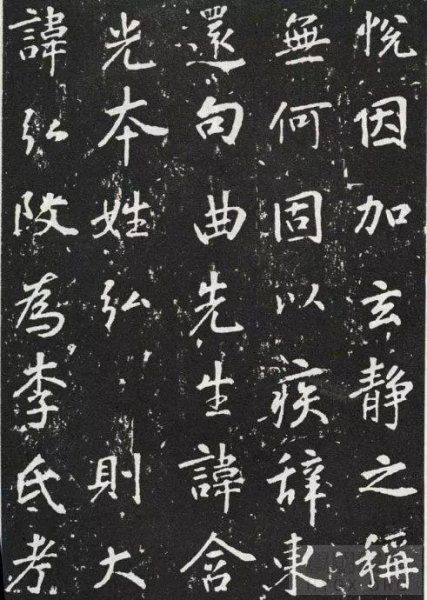 悅因加玄靜之稱
無何固以疾辞東
還句曲先生諱含
光本姓弘則大
諱弘改為李氏考